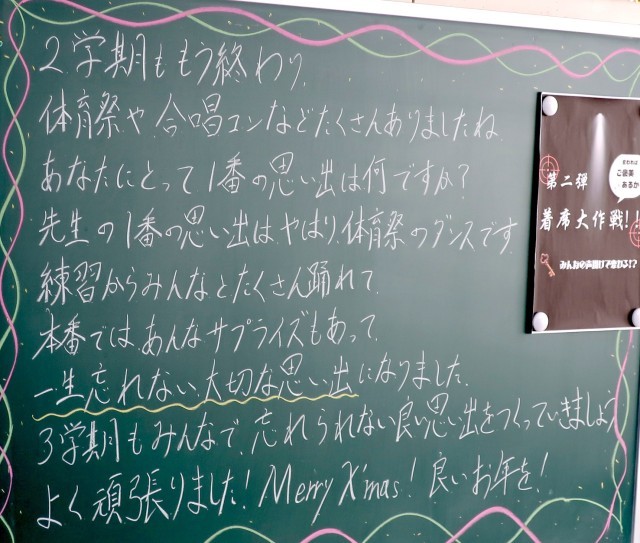 2学期ももう終わり
体育祭や、合唱コンなどたくさんありましたね
あなたにとって1番の思い出は何ですか?
先生の1番の思い出は、やはり体育祭のダンスです
練習からみんなとたくさん踊れて、
本番では、あんなサプライズもあって、
一生忘れない大切な思い出になりました。
3学期もみんなで、忘れられない良い思い出をつくっていきましょう
よく頑張りました! Merry X'mas! 良いお年を!
ご褒美
あるか
第二弾
着席大作戦!